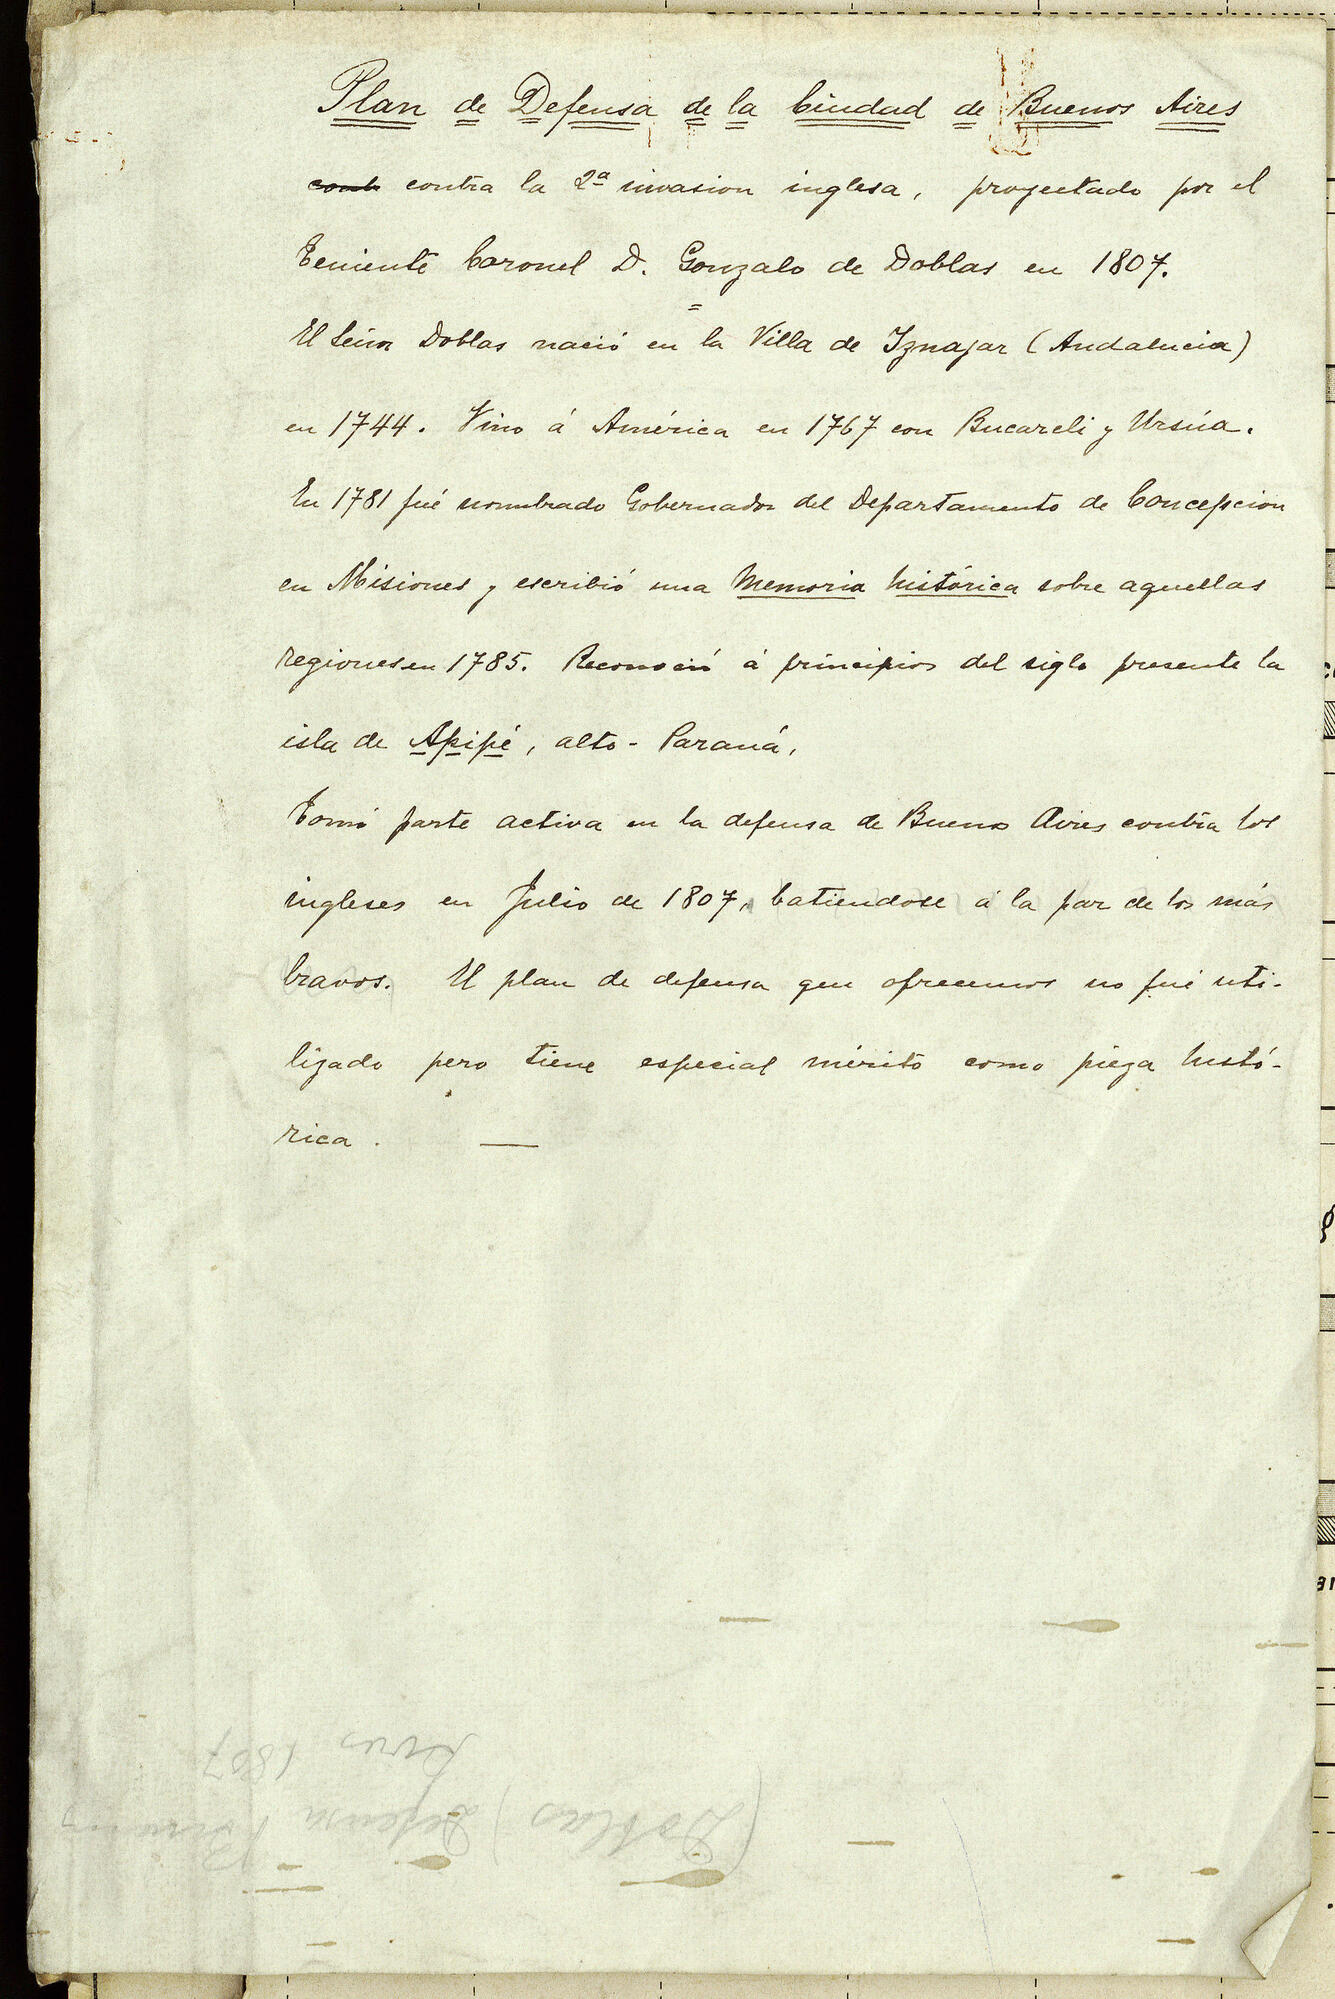 Plan de Defensa de la Ciudad de Buenos Aires
contra la 2ª invasion inglesa, proyectado por el
Teniente Coronel D. Gonzalo de Doblas en 1807.
=
El Señor Doblas nació en la Villa de Iznajar (Andalucia)
en 1744. Vino á América en 1767 con Bucareli y Ursúa.
En 1781 fué nombrado Gobernador del Departamento de Concepcion
en Misiones y escribió una Memoria histórica sobre aquellas
regiones en 1785. Reconoció á principios del siglo presente la
isla de Apipé, alto-Paraná,
Tomó parte activa en la defensa de Buenos Aires contra los
ingleses en Julio de 1807, batiendose á la par de los más
bravos. El plan de defensa que ofrecemos no fué uti-
lizado pero tiene especial mérito como pieza histó-
rica. —
(Doblas) Defensa Buenos
Aires 1807